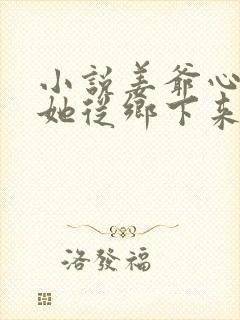 小說姜爺心
她從鄉下來
洛發福